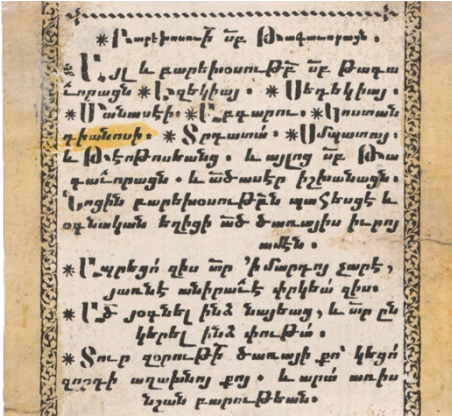 ✱Բարեխօսութի՜ ս՜բ Թագաւորացն.
✱Այլ և բարեխօսութբ՜ ս՜բ թագա
ւորացն ✱Եզեկիայ. ✱Սեդեկիայ.
✱Մանասէի. ✱Աբգարու. ✱Կոստան
դիանոսի. ✱Տրդատա. ✱Սմպատայ,
և Թէօթոսեանց. և այլոց ս՜բ Թա
գաւորացն. և ա՜ծասէր իշխանացն.
Նոցին բարեխօսութբ՜ն պահեսցէ և
օգնական եղիցի ա՜ծ ծառայիս իւրոյ
ամէն.
✱Ապրեցո՛ զիս տ՜ր ՚ի մարդոյ չարէ,
յառնէ անիրաւէ փրկեա՛ զիս.
✱Ա՜ծ յօգնել ինձ նայեաց, և տ՜ր ըն
կերել ինձ փութա՛.
✱Տուր զօրութի՜ ծառայի քո՛ կեցո՛
զորդի աղախնոյ քոյ. և արա՛ առիս
նշան բարութեան.